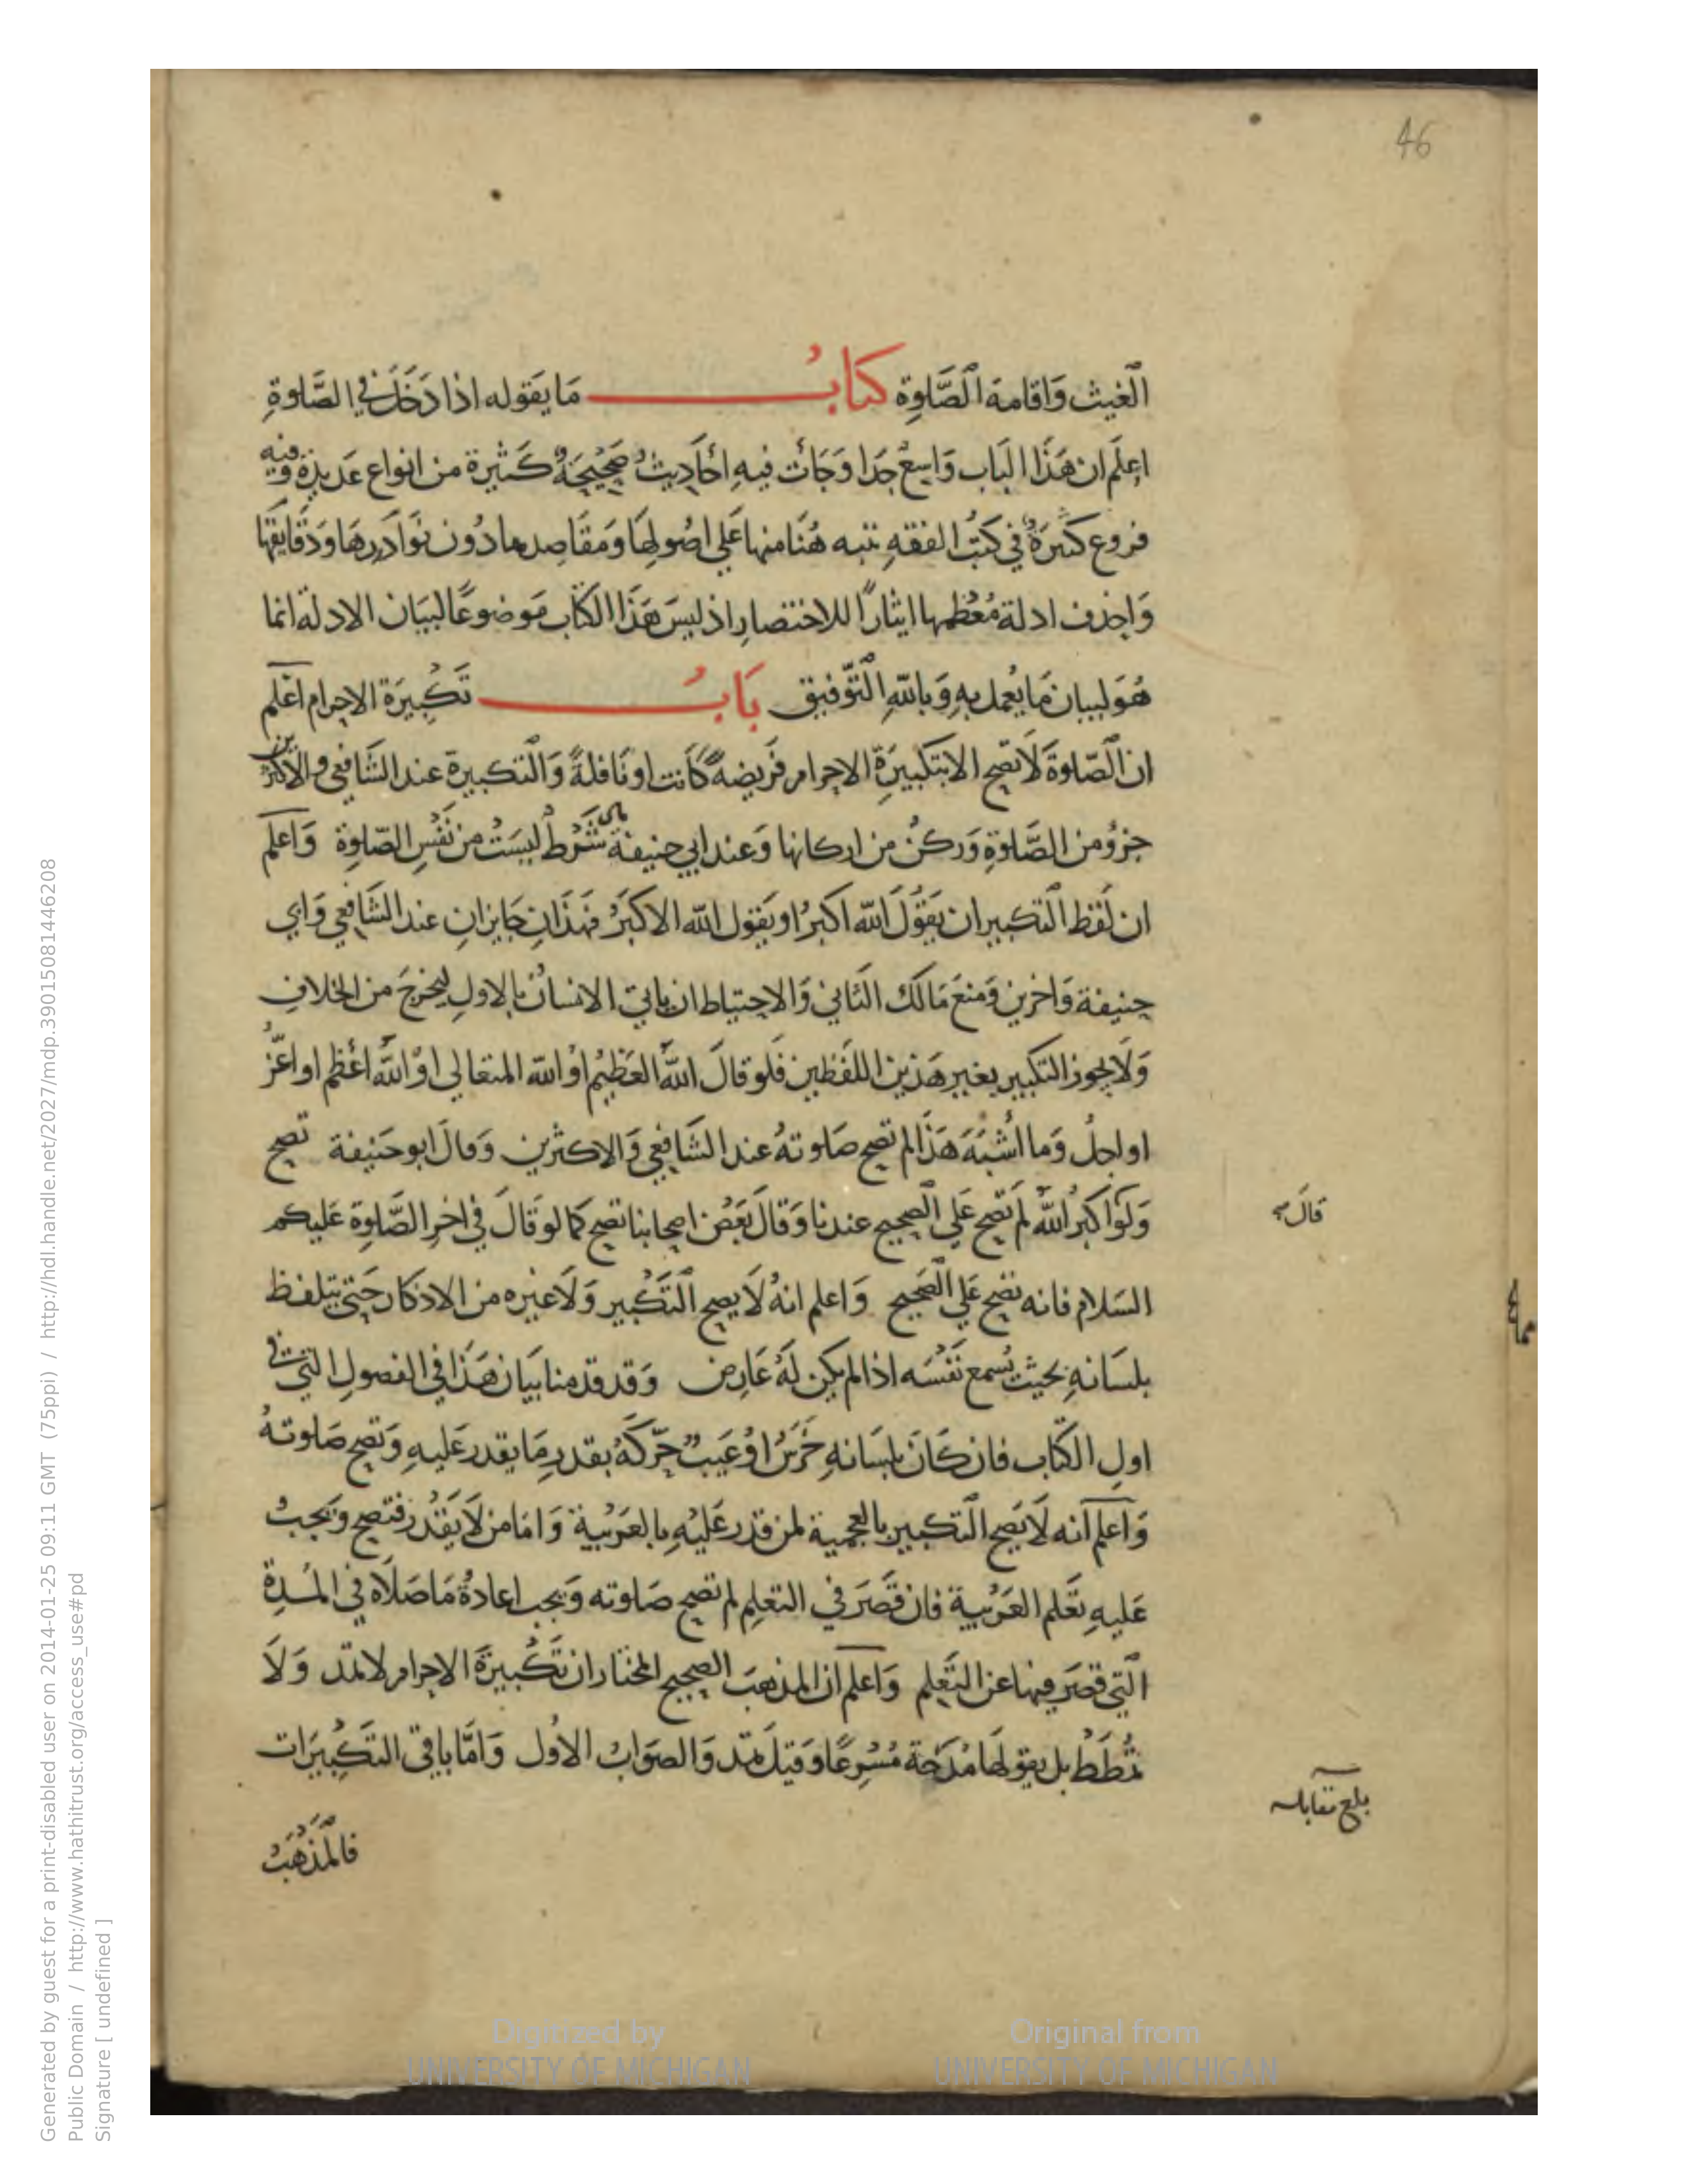 46
الغيث وَاقامة الصَّلوةِ كتابُ مَا يَقوله اذا دَخَلَ في الصَّلوةِ
اعلَم ان هَذَا البَاب وَاسِعٌ جدَا وَجَائت فيهِ احَاديثُ صَحيْحَةٌ كَثيرة من انواع عَديدة وَفيه
فروع كثيرَةٌ في كتُب الفقهِ ننبه هُنَا منها عَلي اصُولهَا وَمَقَاصِدها دُون نوَادرها وَدَقايقهَا
وَاحذف ادلة مُعْظمها ايثارًا للاختصارِ اذ ليسَ هَذَا الكتَاب مَوضوعًا لبيَان الادلة انما
هُوَ لبيان مَا يُعمل بهِ وَبالله التّوفيق بَابُ تَكبيرَة الاحرام اعْلم
ان الصّلوةَ لَا تصَح الا بتكبيرَةِ الاحرام فَريضةً كَانت او نَافلةً وَالتكبيرة عند الشَّافعي والاكثرين
جزؤ من الصَّلوةِ وَركنٌ من اركانها وَعند ابي حنيفة هي شَرْطٌ ليسَتْ من نَفْسِ الصّلوةِ وَاعلم
ان لَفظ التكبير ان يَقوُلَ الله اكبرُ او يَقول الله الاكبَرُ فهَذَانِ جَايزانِ عند الشَّافعي وَابي
حنيفة وَاخرين وَمنعَ مَالك الثَّاني وَالاحتياط ان ياتيَ الانسانُ بالاولِ ليخرجَ من الخلافِ
وَلَا يجوز التكبير بغير هَذين اللفَظين فَلو قالَ اللهُ العَظيمُ اوْ الله المتعالي اوْ اللهُ اعْظم او اعَزُّ
او اجلُ وَما اشْبَهَ هَذَا لم تصح صَلوتهُ عند الشَّافعي وَالاكثرين وَقالَ ابو حَنيفة تصح
وَلَوْ اكبرُ اللهُ لم تصَح عَلي الصحيح عندنا وَقالَ بَعْضُ اصحابنا تصح كما لو قالَ في اخرِ الصَّلوة عَليكم
قالَ صح
السَلام فانه تصح عَلي الصَحيح وَاعلم انهُ لَا يصح التَكبير وَلَا غيره من الاذكار حَتي يتلفظ
بلسَانهِ بحيث يُسمع نَفْسَه اذا لم يكن لَهُ عَارض وَقد قدمنا بيَان هَذَا في الفصولِ التي في
اولِ الكتَاب فان كَانَ بلسَانهِ خَرَسٌ اوْ عَيبٌ حَرّكَهُ بقدرِ مَا يقدر عَليهِ وَتصح صَلوتهُ
وَاعلم انه لَا يَصح التكبير بالعجمية لمن قدر عَليْهِ بالعَرَبية وَامَا من لَا يَقدُر فتصح وَيجبُ
عَليهِ تَعلم العَرَبية فان قَصَّرَ في التعلمِ لم تصح صَلوته وَيجب اعادةُ مَا صَلَّاه في المُدةِ
التي قصَر فيها عن التَعلم وَاعلم ان المذهبَ الصحيح المختار ان تَكْبيرَةَ الاحرام لا تمَد وَلَا
تمُطَط بل يقولهَا مُدْرَجة مُسْرعًا وَقيلَ تمد وَالصوَابُ الاوُل وَامَّا باقي التَكبيرَات
بلغ مقابلة
فالمَذهَبُ